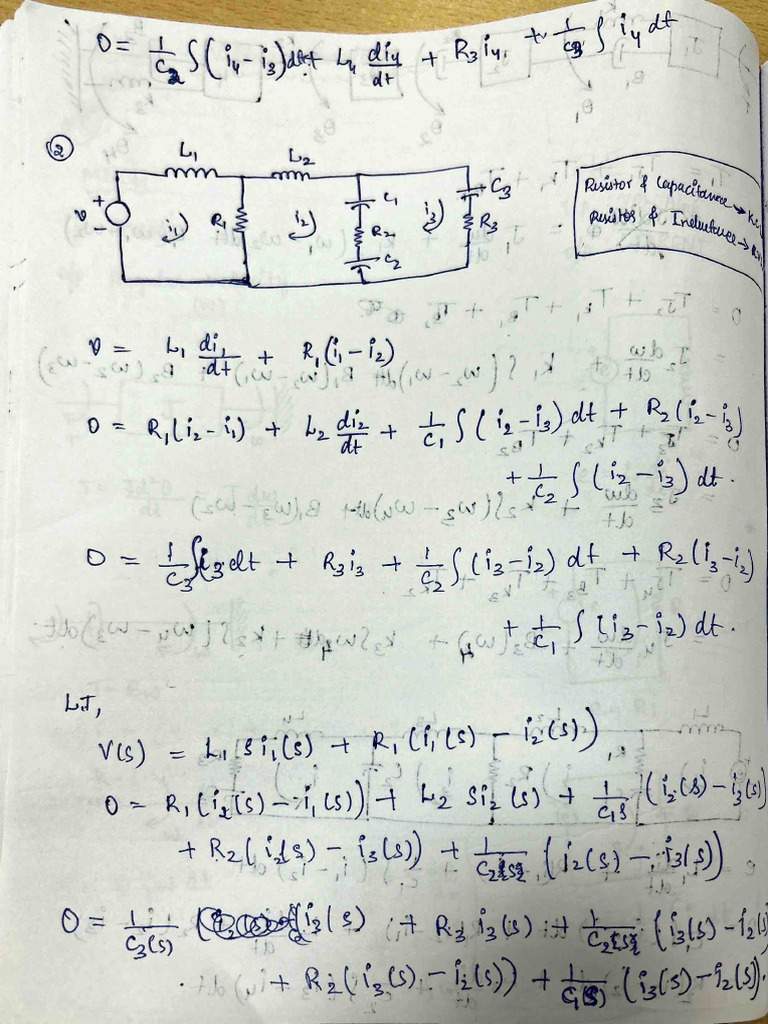 0 = 1/C2 ∫(i4 - i3)dt + L4 di4/dt + R3 i4 + 1/C3 ∫ i4 dt
②
L1 L2
v + - i1 R1 i2 C1 R2 C2 i3 C3 R3
Resistor & Capacitance →
Resistor & Inductance →
v = L1 di1/dt + R1(i1 - i2)
0 = R1(i2 - i1) + L2 di2/dt + 1/C1 ∫(i2 - i3) dt + R2(i2 - i3)
+ 1/C2 ∫(i2 - i3) dt.
0 = 1/C3 ∫i3 dt + R3 i3 + 1/C2 ∫(i3 - i2) dt + R2(i3 - i2)
+ 1/C1 ∫(i3 - i2) dt.
LT,
V(s) = L1 S i1(s) + R1(i1(s) - i2(s))
0 = R1(i2(s) - i1(s)) + L2 S i2(s) + 1/C1s (i2(s) - i3(s))
+ R2(i2(s) - i3(s)) + 1/C2s (i2(s) - i3(s))
0 = 1/C3(s) i3(s) + R3 i3(s) + 1/C2s (i3(s) - i2(s)
+ R2(i3(s) - i2(s)) + 1/C1(s) (i3(s) - i2(s)).